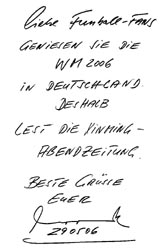 Liebe Fussball-FANS
GENIESEN SIE DIE
WM 2006
IN DEUTSCHLAND.
DESHALB
LEST DIE
ABENDZEITUNG.
BESTE GRÜSSE
EUER
290506